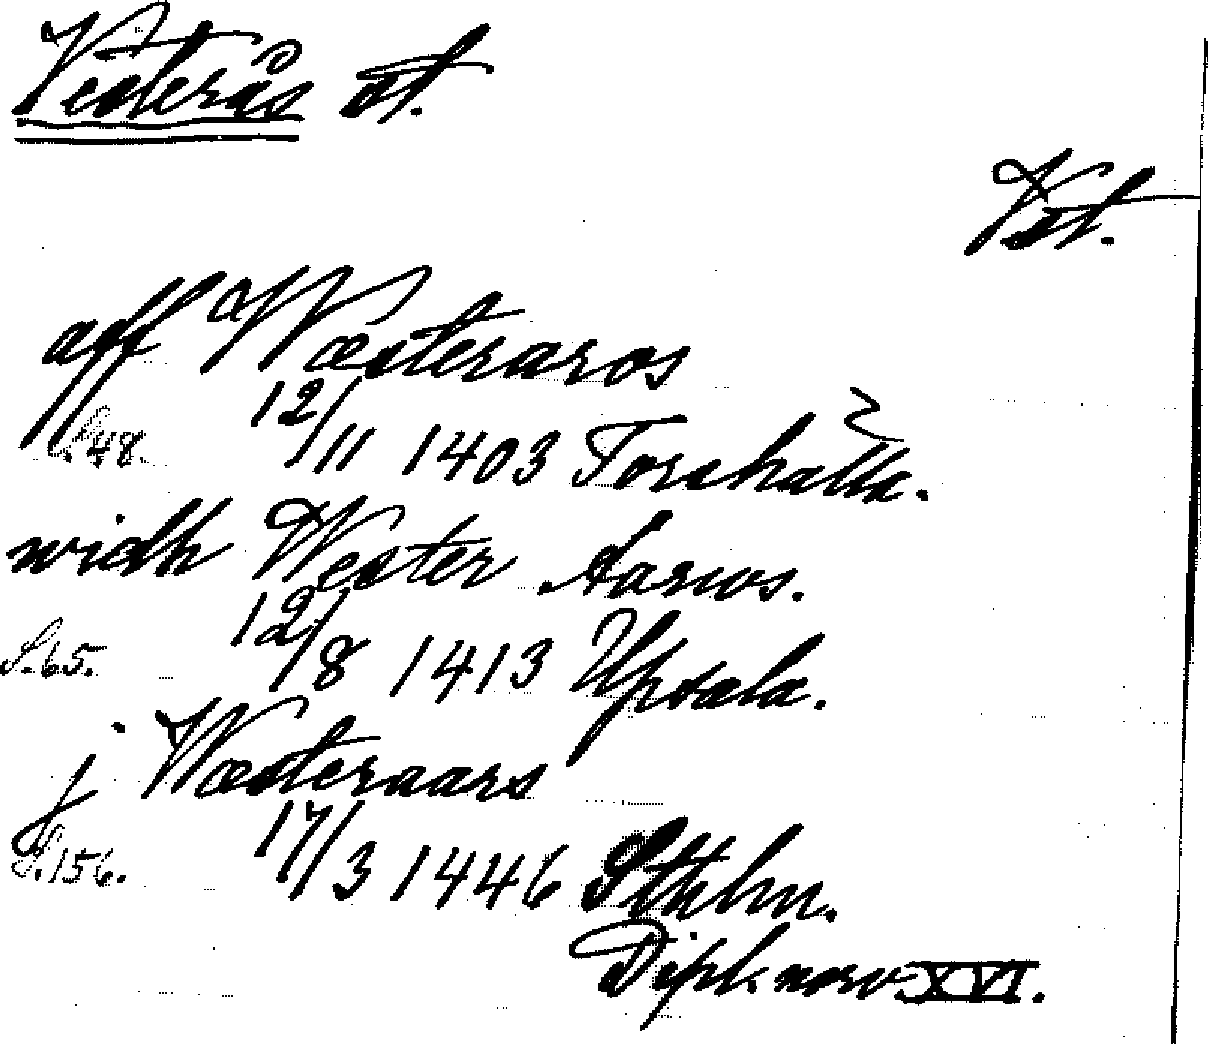 Västerås st.
Vst.
aff Wæsteraros
S. 48. 12/11 1403 Torshalla.
widh Wester Aarwos.
S. 65. 12/8 1413 Upsala.
j Wæsteraars
S. 156. 17/3 1446 Sthlm.
Dipl. norv. XVI.